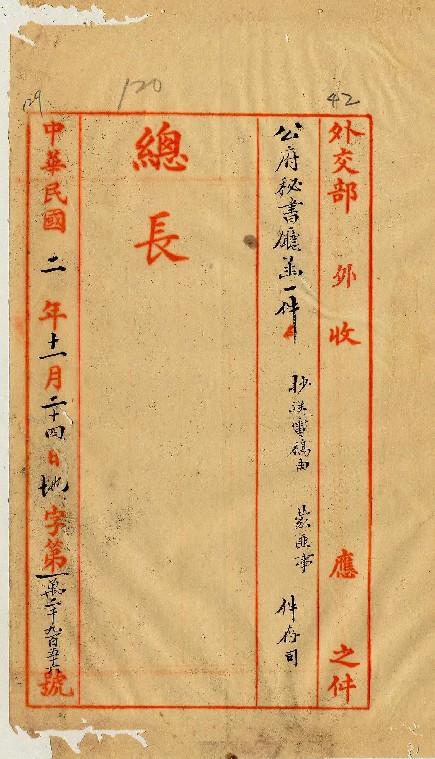 42
外交部 外 收 應 之件
公府秘書廳函一件 抄送電碼由 蒙匪事 件存司
120
總長
129
中華民國二年十一月二十四日地字第一萬二千九百五十六號